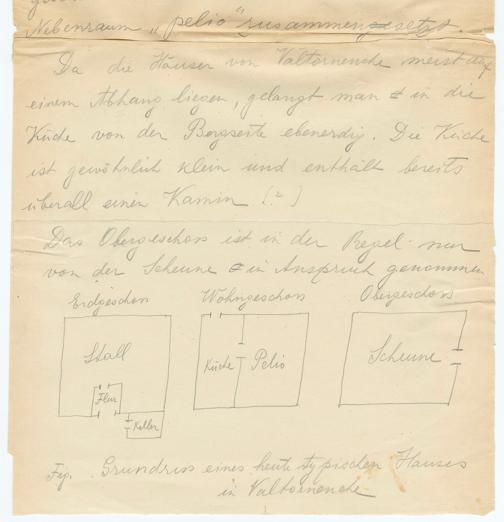 Nebenraum „pelio" zusammengesetzt.
Da die Häuser von Valtornenche meist auf
einem Abhang liegen, gelangt man in die
Küche von der Bergseite ebenerdig. Die Küche
ist gewöhnlich klein und enthält bereits
überall einen Kamin [?]
Das Obergeschoss ist in der Regel nur
von der Scheune in Anspruch genommen
Erdgeschoss Wohngeschoss Obergeschoss
Stall Küche Pelio Scheune
Flur
Keller
Fig. Grundriss eines heute typischen Hauses
in Valtornenche